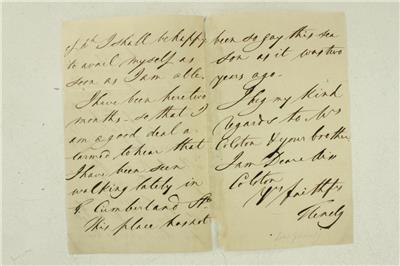 of wh I shall be happy
to avail myself as
soon as I am able.
I have been here two
months - so that I
am a good deal a-
larmed to hear that
I have been seen
walking lately in
Gt Cumberland St.
This place has not
been so gay this sea
son as it was two
years ago.
I beg my kind
regards to Mrs
Colston & your brother
I am Dear Miss
Colston
Yrs faithfy